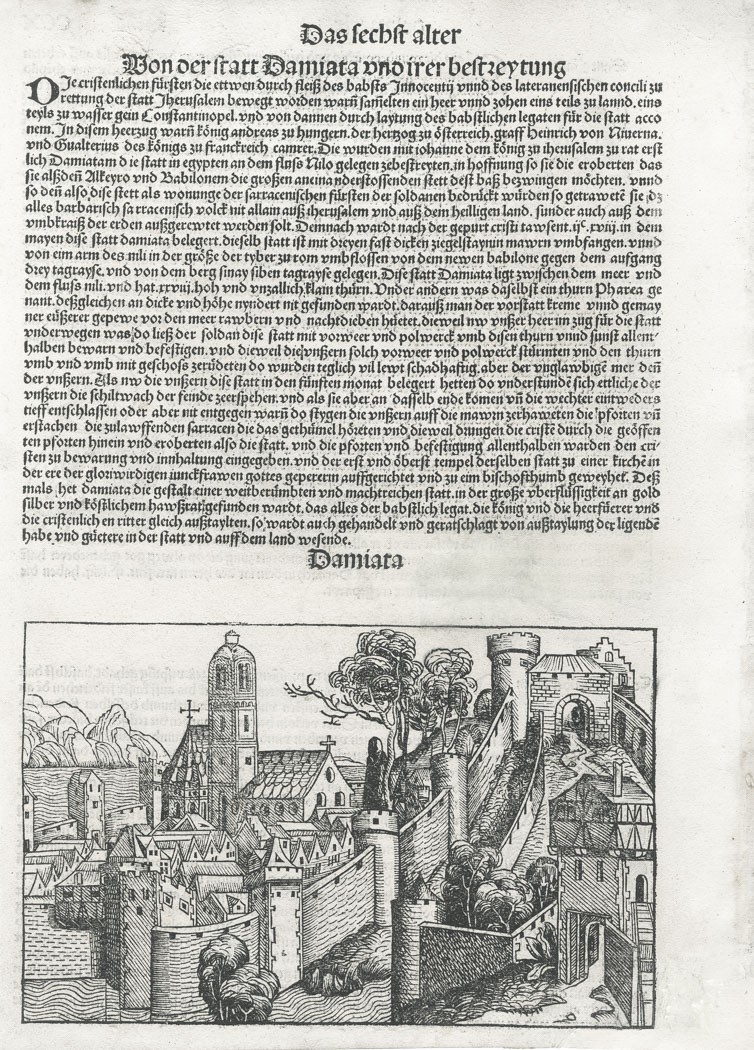 Das sechst alter
Von der statt Damiata vnd irer bestreytung
DJe cristenlichen fürsten die ettwen durch fleiß des babsts Innocentij vnnd des lateranensischen concili zu
rettung der statt Jherusalem bewegt worden warñ sam̃elten ein heer vnnd zohen eins teils zu lannd. eins
teyls zu wasser gein Constantinopel. vnd von dannen durch laytung des babstlichen legaten für die statt acco
nem. In disem heerzug warñ könig andreas zu hungern. der hertzog zu österreich. graff Heinrich von Niuerna.
vnd Gualterius des königs zu franckreich camrer. Die wurden mit iohanne dem könig zu iherusalem zu rat erst
lich Damiatam die statt in egypten an dem fluss Nilo gelegen zebestreyten. in hoffnung so sie die eroberten das
sie alßdeñ Alkeyro vnd Babilonem die großen aneinanderstossenden stett dest baß bezwingen möchten. vnnd
so deñ also dise stett als wonunge der sarracenischen fürsten der soldanen bedrückt würden so getraweten sie
alles barbarisch sarracenisch volck nit allain auß iherusalem vnd auß dem heiligen land. sunder auch auß dem
vmbkraiß der erden außgerewtet werden solt. Demnach wardt nach der gepurt cristi tawsent. ijᶜ. xviij. in dem
mayen dise statt damiata belegert. dieselb statt ist mit dreyen fast dicken ziegelstaynin mawrn vmbfangen. vnnd
von eim arm des nili in der größe der tyber zu rom vmbflossen von dem newen babilone gegen dem aufgang
drey tagrayse. vnd von dem berg sinay siben tagrayse gelegen. Dise statt Damiata ligt zwischen dem meer vnd
dem fluss nili. vnd hat. xxviij. hoh vnd vnzallich klain thürn. Vnder andern was daselbst ein thurn Pharea ge
nant. deßgleichen an dicke vnd höhe nyndert nit gefunden wardt. darauß man der vorstatt kreme vnnd gemay
ner eüßerer gepewe vor den meer rawbern vnd nachtdieben hüetet. dieweil nw vnßer heer im zug für die statt
vnderwegen was do ließ der soldan dise statt mit vorweer vnd polwerck vmb disen thurn vnnd sunst allent
halben bewarn vnd befestigen. vnd dieweil die vnßern solch vorweer vnd polwerck stürmten vnd den thurn
vmb vnd vmb mit geschoss zerüdeten do wurden teglich vil lewt schadhaftig. aber der vnglawbigē mer deñ
der vnßern. Als nw die vnßern dise statt in den fünften monat belegert hetten do vnderstunde͂ sich ettliche der
vnßern die schiltwach der feinde zeerspehen. vnd als sie aber an dasselb ende komen vñ die wechter eintweders
tieff entschlassen oder aber nit entgegen warñ do stygen die vnßern auff die mawrn zerhaweten die pforten vñ
erstachen die zulawffenden sarracen die das gethümel höreten vnd dieweil drungen die cristē durch die geöffen
ten pforten hinein vnd eroberten also die statt. vnd die pforten vnd befestigung allenthalben warden den cri-
sten zu bewarung vnd innhaltung eingegeben. vnd der erst vñ öberst tempel derselben statt zu einer kirchē in
der ere der gloriwirdigen iunckfrawen gottes gepererin auffgerichtet vnd zu eim bischofthumb geweyhet. Deß
mals het damiata die gestalt einer weitberümbten vnd machtreichen statt. in der große vberflüssigkeit an gold
silber vnd köstlichem hawßrat gefunden wardt. das alles der babstlich legat. die könig vnd die heerfüerer vnd
die cristenlichen ritter gleich außtaylten. so wardt auch gehandelt vnd geratschlagt von außtaylung der ligende͂
habe vnd güetere in der statt vnd auff dem land wesende.
Damiata